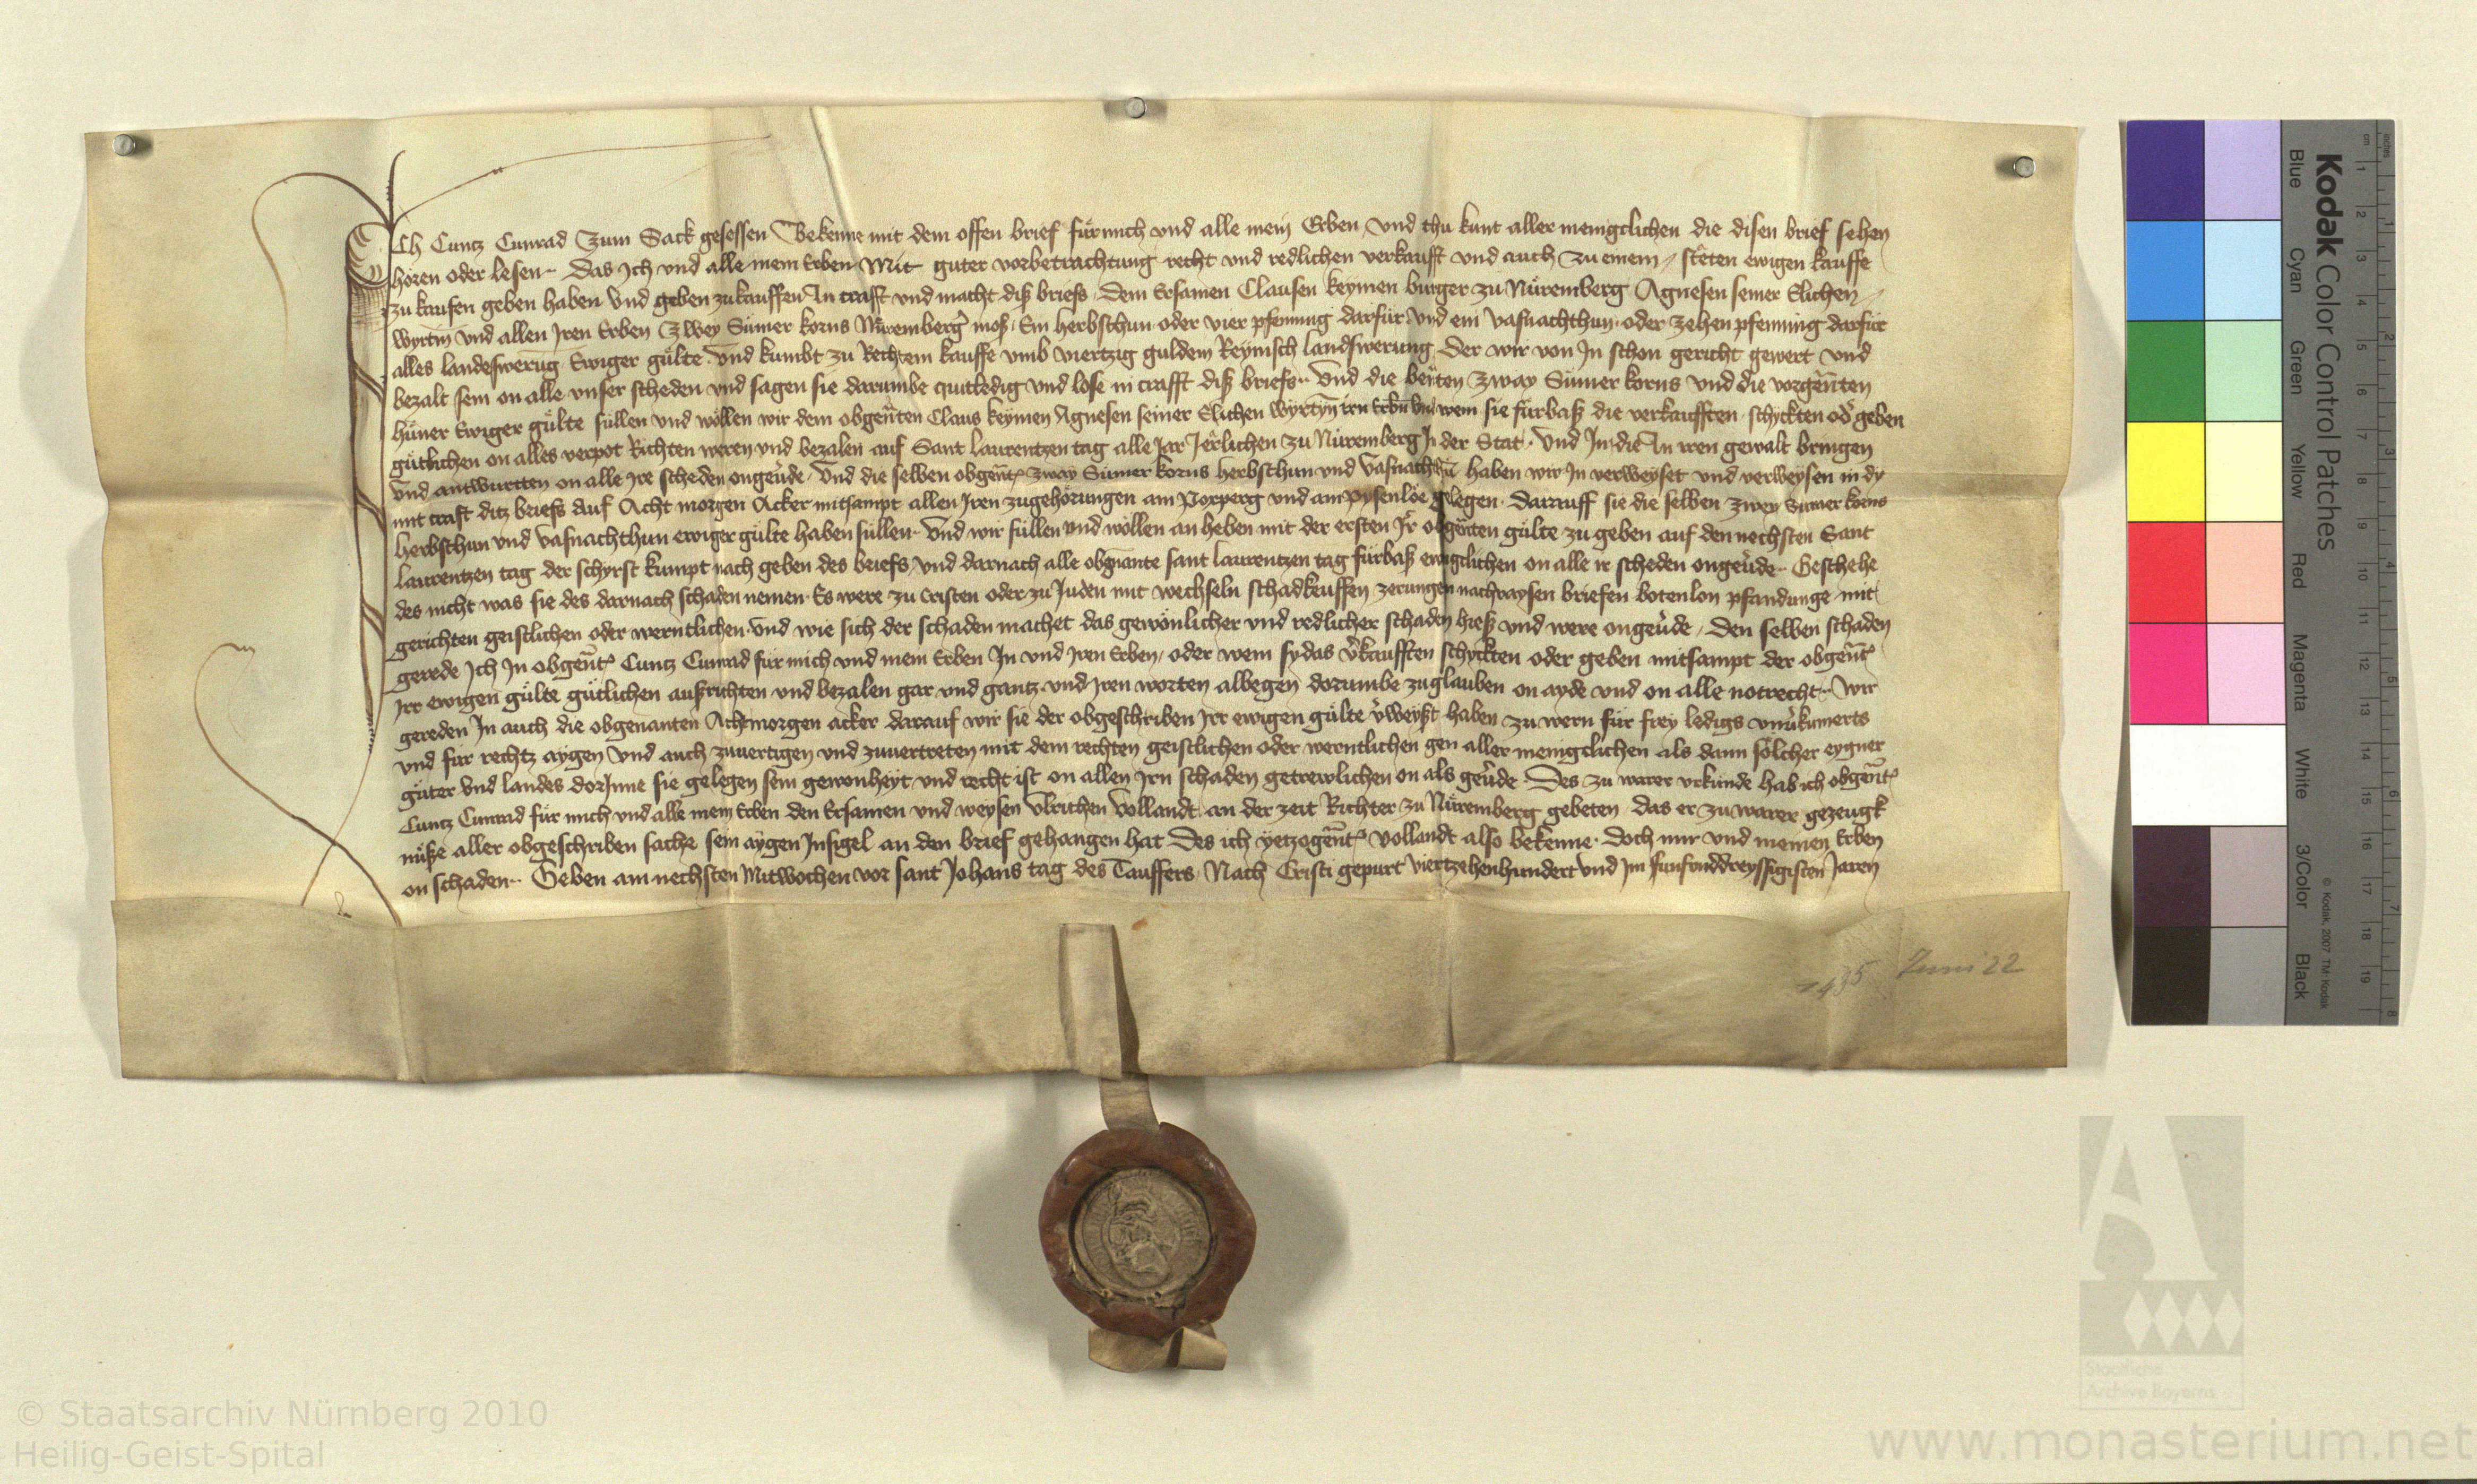 Ich Cuntz Cunrad Zum Sack gesessen Bekenne mit dem offen brief für mich vnd alle mein Erben vnd thu kunt aller menigclichen die disen brief sehen
hören oder lesen Das Ich vnd alle mein Erben Mit guter vorbetrachtung recht vnd redlichen verkaufft vnd auch zu einem steten ewigen kauffe
zu kaufen geben haben vnd geben zukauffen In crafft vnd macht diß briefs Dem Ersamen Clausen keymen burger zu Nüremberg Agnesen seiner Elichen
wyrtin vnd allen Iren Erben Zwey Sümer korns Nüremberger moß Ein herbsthun oder vier pfenning darfür vnd ein vasnachthun oder zehen pfenning darfür
alles landeswerūg Ewiger gülte vnd kumbt zu Rechtem kauffe vmb viertzig guldein Reynisch landswerung Der wir von In schon gericht gewert vnd
bezalt sein on alle vnser scheden vnd sagen sie darumbe quitledig vnd lose in crafft diß briefs Vnd die beyten zway Sümer korns vnd die vorgeñten
hüner Ewiger gülte süllen vnd wöllen wir dem obgeñten Claus keymen Agnesen seiner Elichen wyrtyn irn Erbn vnd wem sie fürbaß die verkaufften schyckten od̕ geben
gütlichen on alles verpot Richten weren vnd bezalen auf Sant laurentzen tag alle Jar Jerlichen zu Nüremberg In der Stat Vnd In die In iren gewalt bringen
vnd antwurtten on alle Ire scheden ongeu̕de Vnd die selben obgeñt zway Sümer korns herbsthun vnd vasnachthū haben wir In verweyset vnd verweysen in dy
mit craft ditz briefs auf Acht morgen Acker mitsampt allen Iren zugehörungen am Norperg vnd am pysenlöe gelegen darauff sie die selben zwey Sumer korns
herbsthun vnd vasnachthun ewiger gülte haben süllen Vnd wir süllen vnd wöllen an heben mit der ersten Ir̕ obgeñten gülte zu geben auf den nechsten Sant
laurentzen tag der schyrst kumpt nach geben des briefs vnd darnach alle obgnante sant laurentzen tag fürbaß ewigclichen on alle ir scheden ongeu̕de Geschehe
des nicht was sie des darnach schaden nemen Es were zu cristen oder zu Juden mit wechseln schadkeuffen zerungen nachraysen briefen botenlon pfandunge mit
gerichten geistlichen oder werntlichen vnd wie sich der schaden machet das gewönlicher vnd redlicher schaden hieß vnd were ongeu̕de Den selben schaden
gerede Ich In obgeñt Cuntz Cunrad für mich vnd mein Erben In vnd Iren Erben oder wem sy das v̕kaufften schyckten oder geben mitsampt der obgeñt
Irr ewigen gülte gütlichen außrichten vnd bezalen gar vnd gantz vnd Iren worten albegen dorumbe zuglauben on ayde vnd on alle notrecht Wir
gereden In auch die obgenanten Achtmorgen acker darauf wir sie der obgeschriben Irr ewigen gülte v̕weyßt haben zu wern für frey ledigs vnu̕kumerts
vnd für rechtz aygen Vnd auch zuuertigen vnd zuuertreten mit dem rechten geistlichen oder werntlichen gen aller menigclichen als dann sölcher eygner
güter vnd landes dorInne sie gelegen sein gewonheyt vnd recht ist on allen Irn schaden getrewlichen on als geu̕de Des zu warer vrkunde hab ich obgeñt
Cuntz Cunrad für mich vnd alle mein Erben den Ersamen vnd weysen Vlrichen Vollandt an der zeit Richter zu Nüremberg gebeten das er zu warer gezeugk
nüße aller obgeschriben sache sein aygen Insigel an den brief gehangen hat Des ich yetzogeñt Vollandt also bekenne Doch mir vnd meinen Erben
on schaden Geben am nechsten Mitwochen vor sant Johans tag des Tauffers Nach Cristi gepurt Viertzehenhundert vnd Im funfvnddreyssigisten Jaren
1435 Juni 22
Kodak Color Control Patches
Blue Cyan Green Yellow Red Magenta White 3/Color Black
© Kodak, 2007 TM: Kodak
cm 1 2 3 4 5 6 7 8 9 10 11 12 13 14 15 16 17 18 19
inches 1 2 3 4 5 6 7 8
Staatliche
Archive Bayerns
© Staatsarchiv Nürnberg 2010
Heilig-Geist-Spital
www.monasterium.net